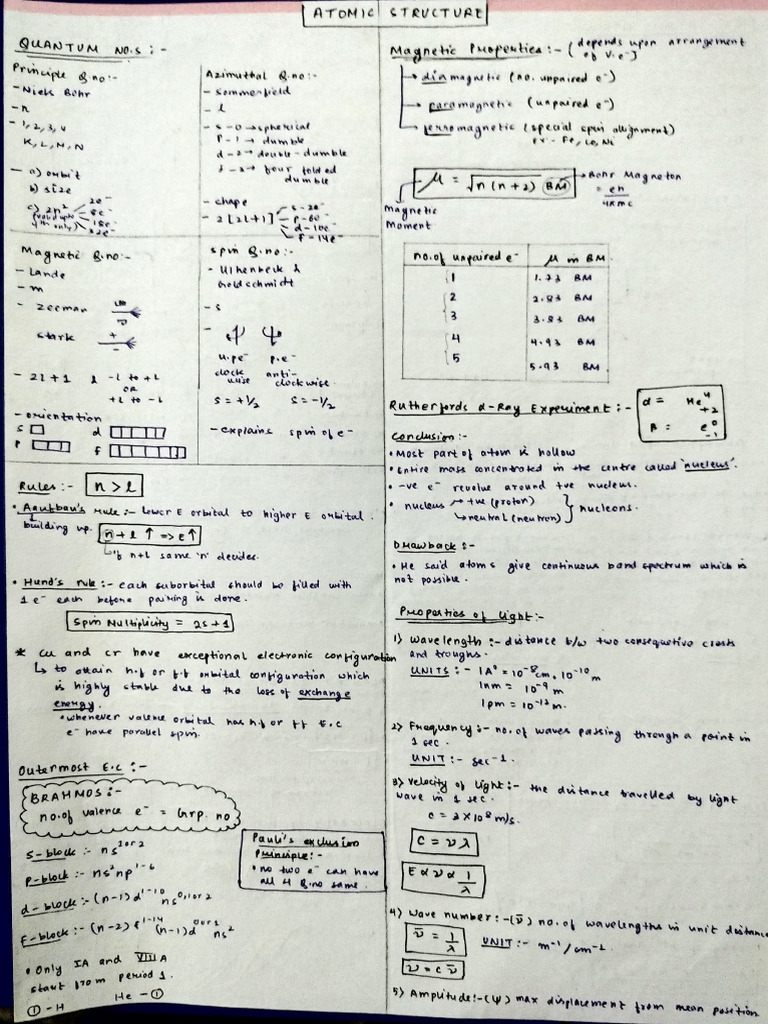 ATOMIC STRUCTURE
QUANTUM NO.S :-
Principle Q.no:-
- Niels Bohr
- n
- 1, 2, 3, 4
K, L, M, N
- a) orbit
b) size
c) 2n² 2e⁻
(valid upto 8e⁻
4th only) 18e⁻
32e⁻
Azimuthal Q.no:-
- Sommerfield
- l
- s - 0 → spherical
P - 1 → dumble
d - 2 → double-dumble
f - 3 → four folded
dumble
- shape
- 2[2l+1] s - 2e⁻
p - 6e⁻
d - 10e⁻
f = 14e⁻
Magnetic Q.no:-
- Lande
- m
- zeeman
stark + -
- 2l + 1 l -l to +l
or
+l to -l
- orientation
s d
p f
Spin Q.no:-
- Uhlenbeck &
Goldschmidt
- s
- u.pe⁻ p.e⁻
clock anti-
wise clockwise.
s = +1/2 s = -1/2
- explains spin of e⁻
Rules:- n > l
• Aaufbau's rule:- lower E orbital to higher E orbital.
building up. n + l ↑ => e ↑
if n+l same 'n' decides.
• Hund's rule:- each suborbital should be filled with
1 e⁻ each before pairing is done.
Spin Multiplicity = 2s + 1
* Cu and Cr have exceptional electronic configuration
↳ to attain h.f or f.f orbital configuration which
is highly stable due to the loss of exchange
energy.
• whenever valence orbital has h.f or f.f E.C
e⁻ have parallel spin.
Outermost E.C :-
BRAHMOS :-
no. of valence e⁻ = Grp. no
s-block :- ns¹ᵒʳ²
p-block :- ns²np¹⁻⁶
d-block :- (n-1)d¹⁻¹⁰ ns⁰,¹ᵒʳ²
F-block :- (n-2)f¹⁻¹⁴ (n-1)d⁰ᵒʳ¹ ns²
Pauli's exclusion
Principle:-
• no two e⁻ can have
all 4 Q.no same.
• Only IA and VIII A
start from period 1.
① - H He - ①
Magnetic Properties:- (depends upon arrangement
of V.e⁻)
→ diamagnetic (no. unpaired e⁻)
→ paramagnetic (unpaired e⁻)
→ ferromagnetic (special spin allignment)
Fe, Co, Ni
μ = √n(n+2) BM → Bohr Magneton
= eh
4πmc
Magnetic
Moment
no. of unpaired e⁻ μ in BM
1 1.73 BM
2 2.83 BM
3 3.83 BM
4 4.93 BM
5 5.93 BM
Rutherfords α-Ray Experiment:- α = He⁴₊₂
β = e⁰₋₁
Conclusion:-
• Most part of atom is hollow
• Entire mass concentrated in the centre called 'nucleus'.
• -ve e⁻ revolve around +ve nucleus.
• nucleus → +ve (proton)
↳ neutral (neutron) } nucleons.
Drawback :-
• He said atoms give continuous band spectrum which is
not possible.
Properties of Light:-
1) Wavelength :- distance b/w two consequetive crests
and troughs.
UNITS :- 1A° = 10⁻⁸cm, 10⁻¹⁰m
1nm = 10⁻⁹ m
1pm = 10⁻¹²m.
2) Frequency :- no. of waves passing through a point in
1 sec.
UNIT :- sec⁻¹.
3) Velocity of light :- the distance travelled by light
wave in 1 sec.
c = 3 × 10⁸ m/s.
C = νλ
E α ν α 1/λ
4) Wave number :- (ν̄) no. of wavelengths in unit distance
ν̄ = 1/λ UNIT :- m⁻¹/cm⁻¹.
ν = c ν̄
5) Amplitude :- (ψ) max displacement from mean position